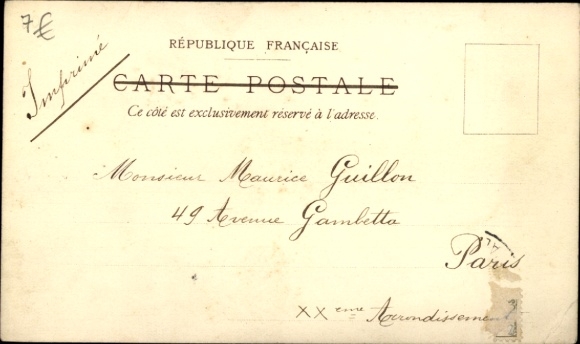 7€
Imprimé
RÉPUBLIQUE FRANÇAISE
CARTE POSTALE
Ce côté est exclusivement réservé à l'adresse.
Monsieur Maurice Guillon
49 Avenue Gambetta
Paris
XXeme Arrondissement